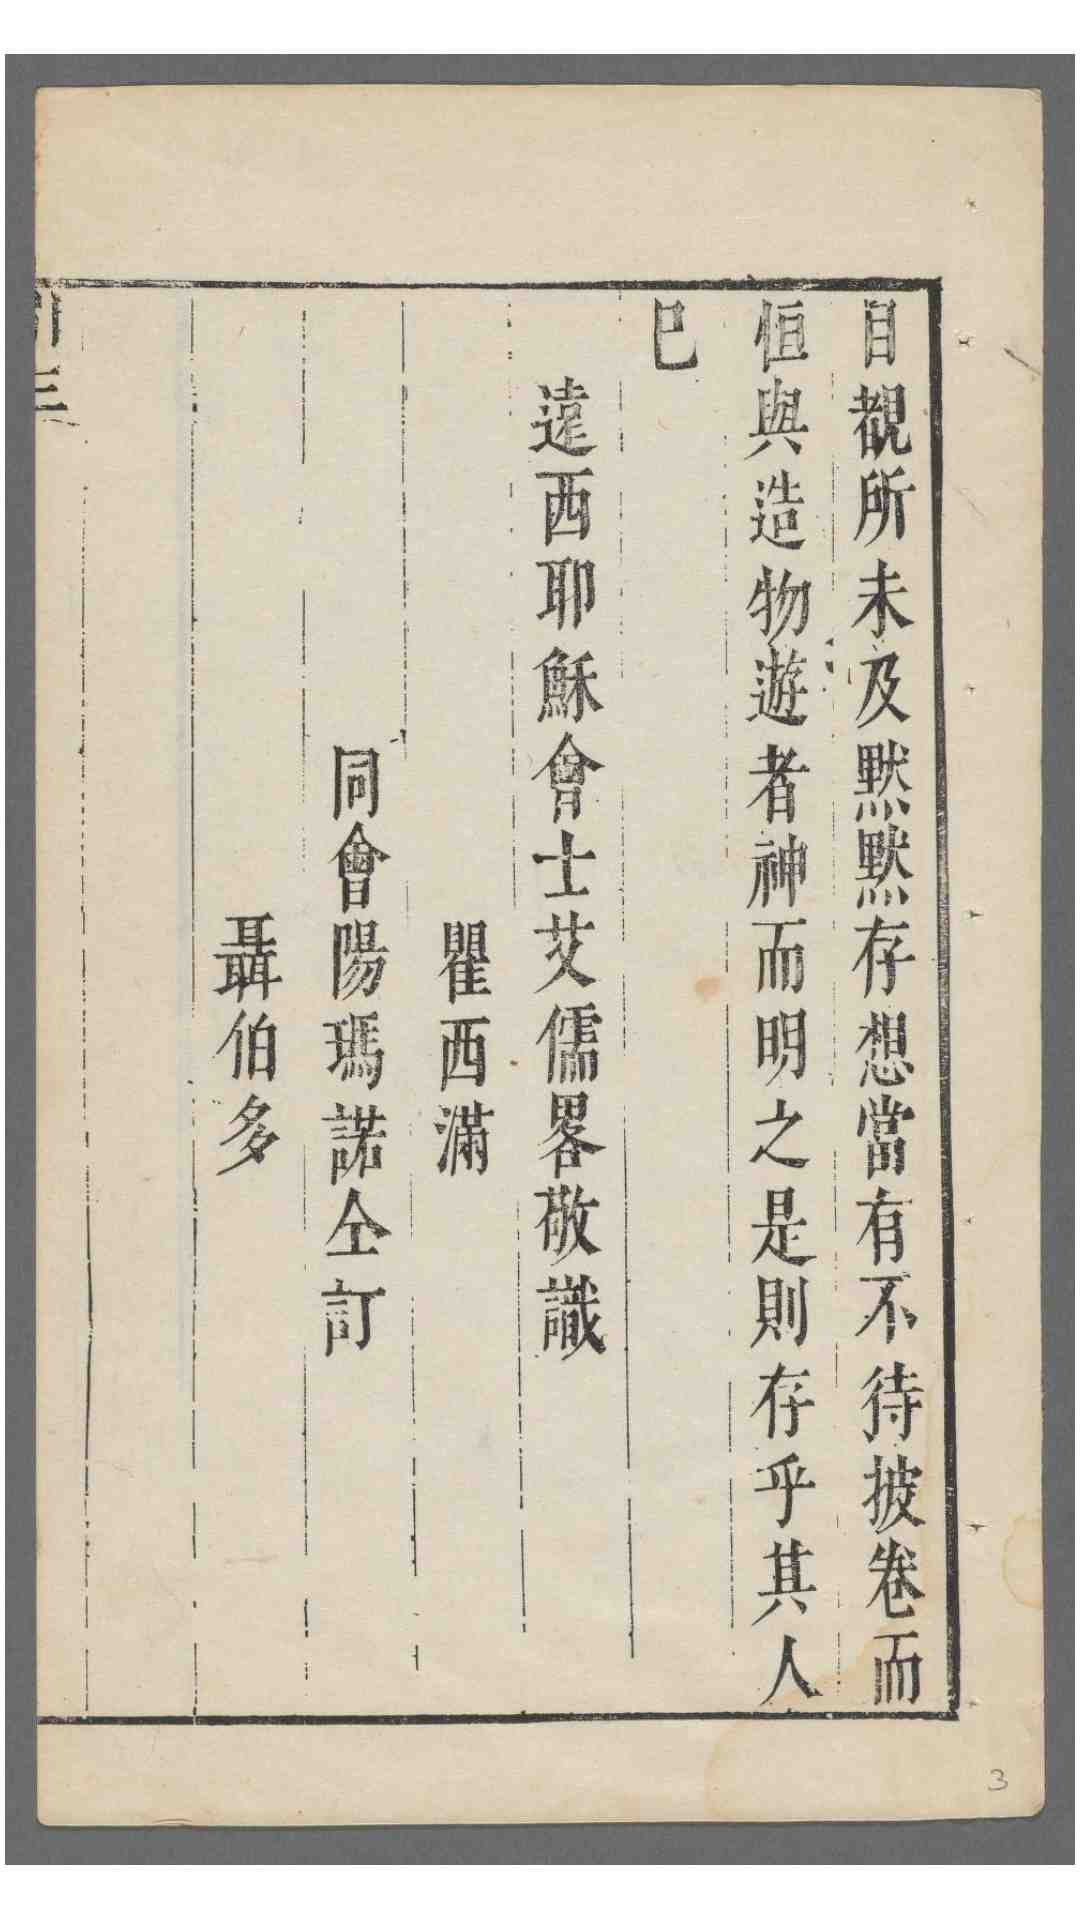 目覩所未及默默存想當有不待披卷而
恒與造物遊者神而明之是則存乎其人
巳
遠西耶穌會士艾儒畧敬識
瞿西滿
同會陽瑪諾仝訂
聶伯多
引三
3